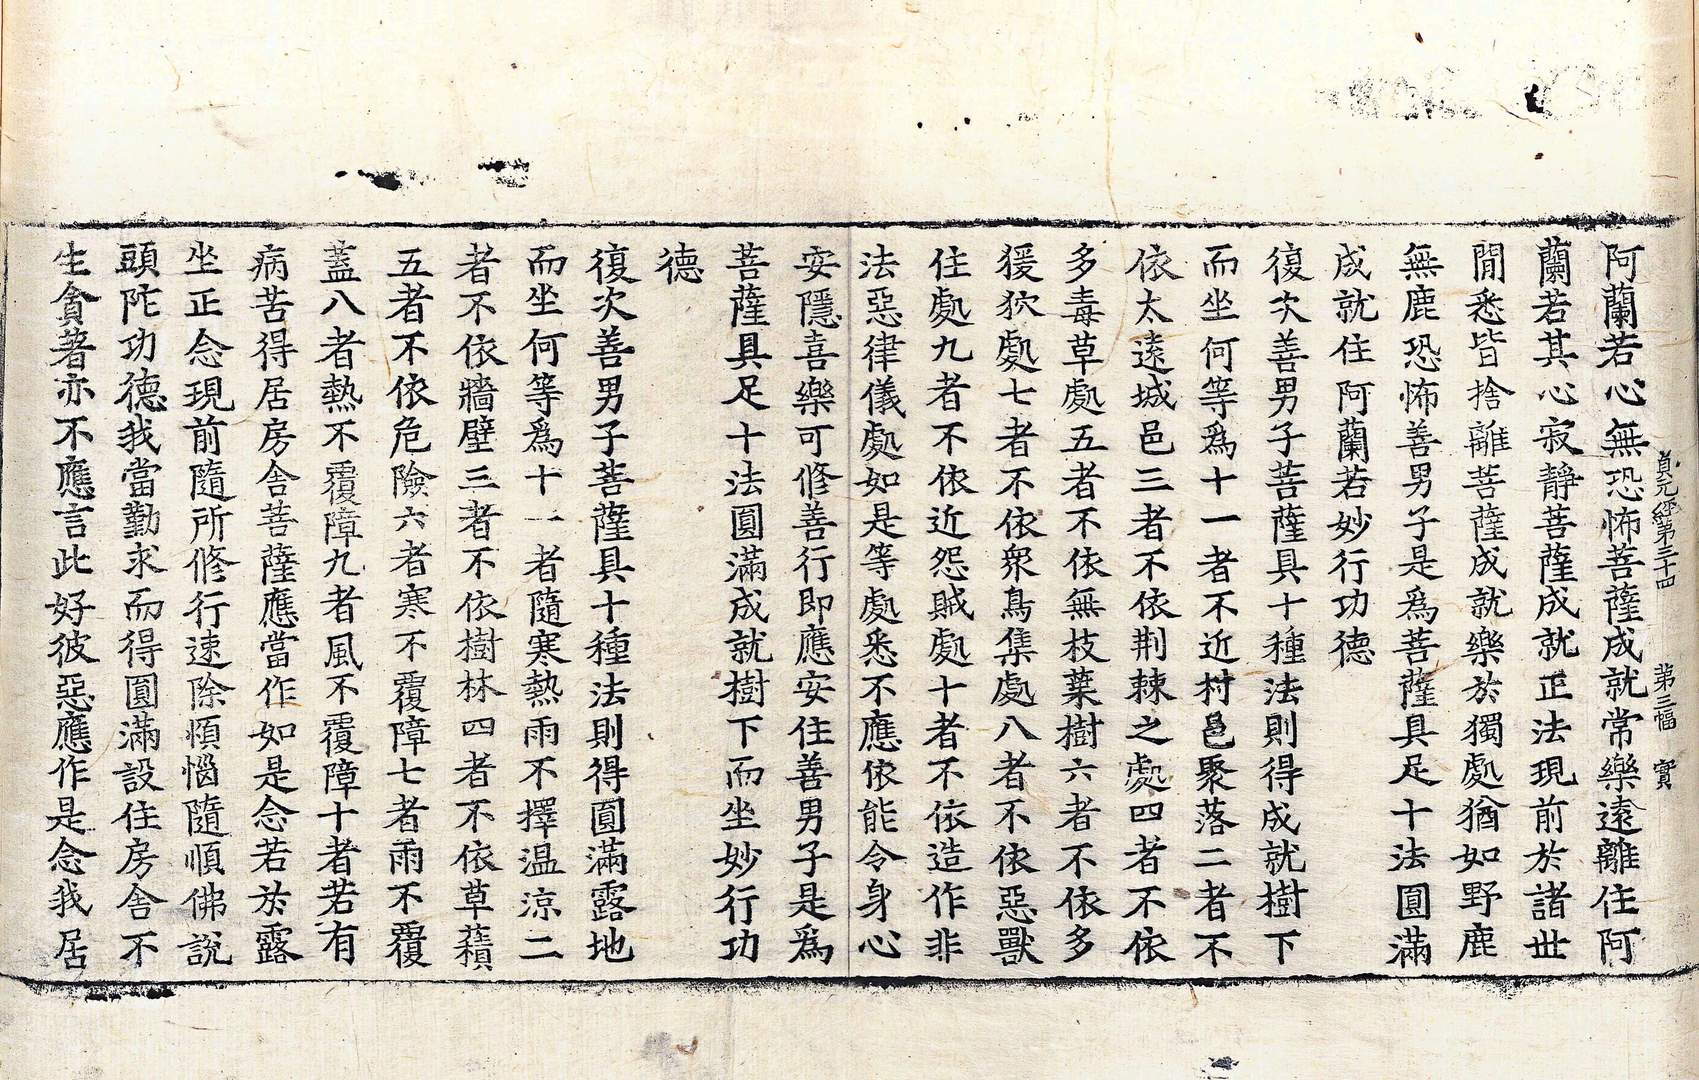 阿蘭若心無恐怖菩薩成就常樂遠離住阿
貞元經第三十四　第三幅　實
蘭若其心寂靜菩薩成就正法現前於諸世
閒悉皆捨離菩薩成就樂於獨處猶如野鹿
無鹿恐怖善男子是爲菩薩具足十法圓滿
成就住阿蘭若妙行功德
復次善男子菩薩具十種法則得成就樹下
而坐何等爲十一者不近村邑聚落二者不
依太遠城邑三者不依荆棘之處四者不依
多毒草處五者不依無枝葉樹六者不依多
猨狖處七者不依衆鳥集處八者不依惡獸
住處九者不依近怨賊處十者不依造作非
法惡律儀處如是等處悉不應依能令身心
安隱喜樂可修善行即應安住善男子是爲
菩薩具足十法圓滿成就樹下而坐妙行功
德
復次善男子菩薩具十種法則得圓滿露地
而坐何等爲十一者隨寒熱雨不擇温涼二
者不依牆壁三者不依樹林四者不依草𧂐
五者不依危險六者寒不覆障七者雨不覆
蓋八者熱不覆障九者風不覆障十者若有
病苦得居房舍菩薩應當作如是念若於露
坐正念現前隨所修行速除煩惱隨順佛說
頭陀功德我當勤求而得圓滿設住房舍不
生貪著亦不應言此好彼惡應作是念我居